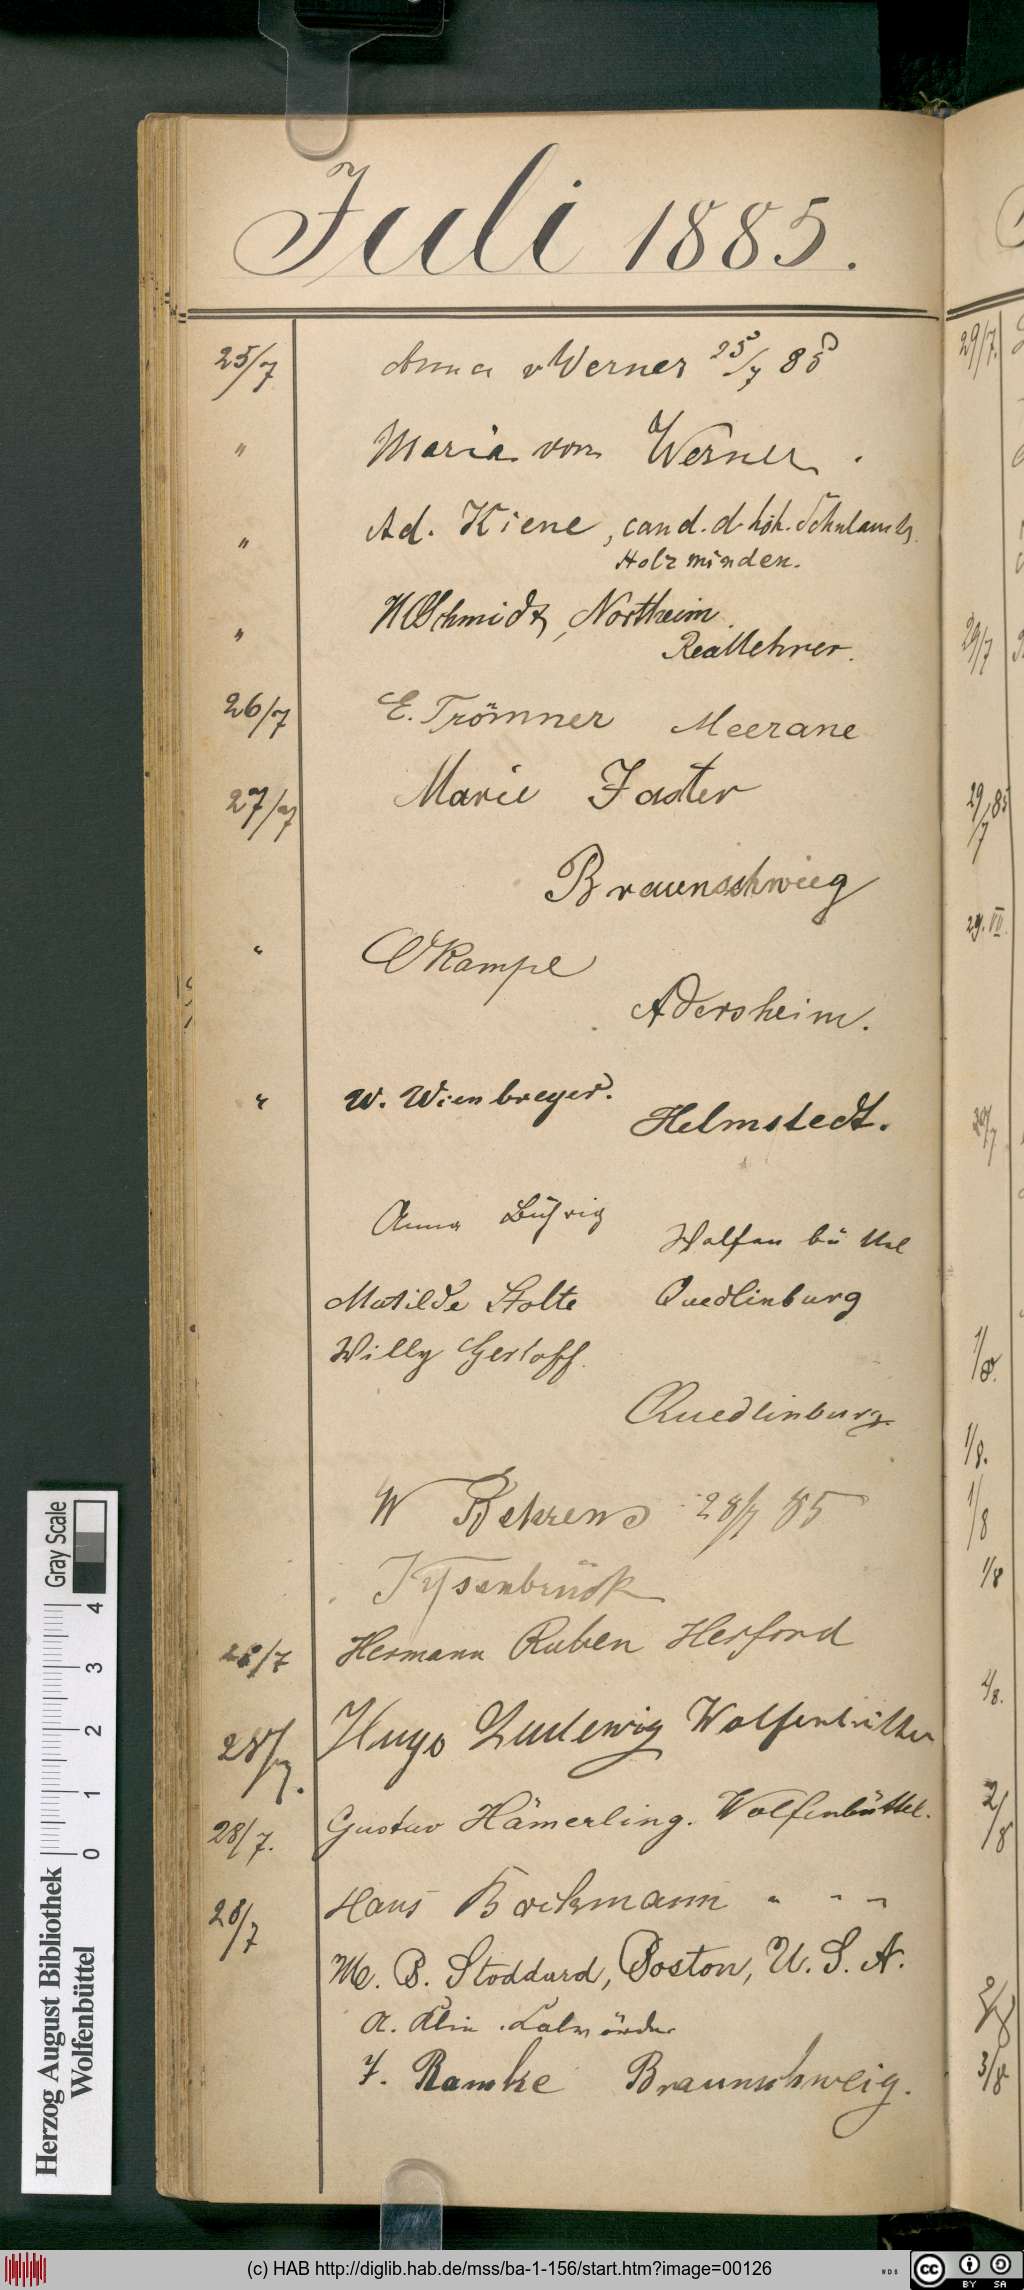 Juli 1885.
25/7 Anna v Werner 25/7 85
" Maria von Werner.
" Ad. Kiene, cand. d. höh. Schulamts.
Holzminden.
" Schmidt, Northeim.
Reallehrer.
26/7 E. Trömner Meerane
27/7 Marie Faster
Braunschweig
" Kampe
Adersheim.
" W. Wienbreyer.
Helmstedt.
Anna Bührig Wolfenbüttel
Matilde Stolte Quedlinburg
Willy Gerloff.
Quedlinburg.
W Behrens 28/7 85
Kissenbrück
28/7 Hermann Ruben Herford
28/7. Hugo Ludewig Wolfenbüttel
28/7. Gustav Hämerling. Wolfenbüttel.
28/7 Hans Brckmann " " "
M. B. Stoddard, Boston, U. S. A.
A.
F. Ramke Braunschweig.
29/7.
29/7
29/7 85
29. VII.
1/8.
1/8.
1/8
1/8
2/8.
2/8
3/8
Gray Scale
4 3 2 1 0
Herzog August Bibliothek
Wolfenbüttel
(c) HAB http://diglib.hab.de/mss/ba-1-156/start.htm?image=00126
WDB
cc BY SA